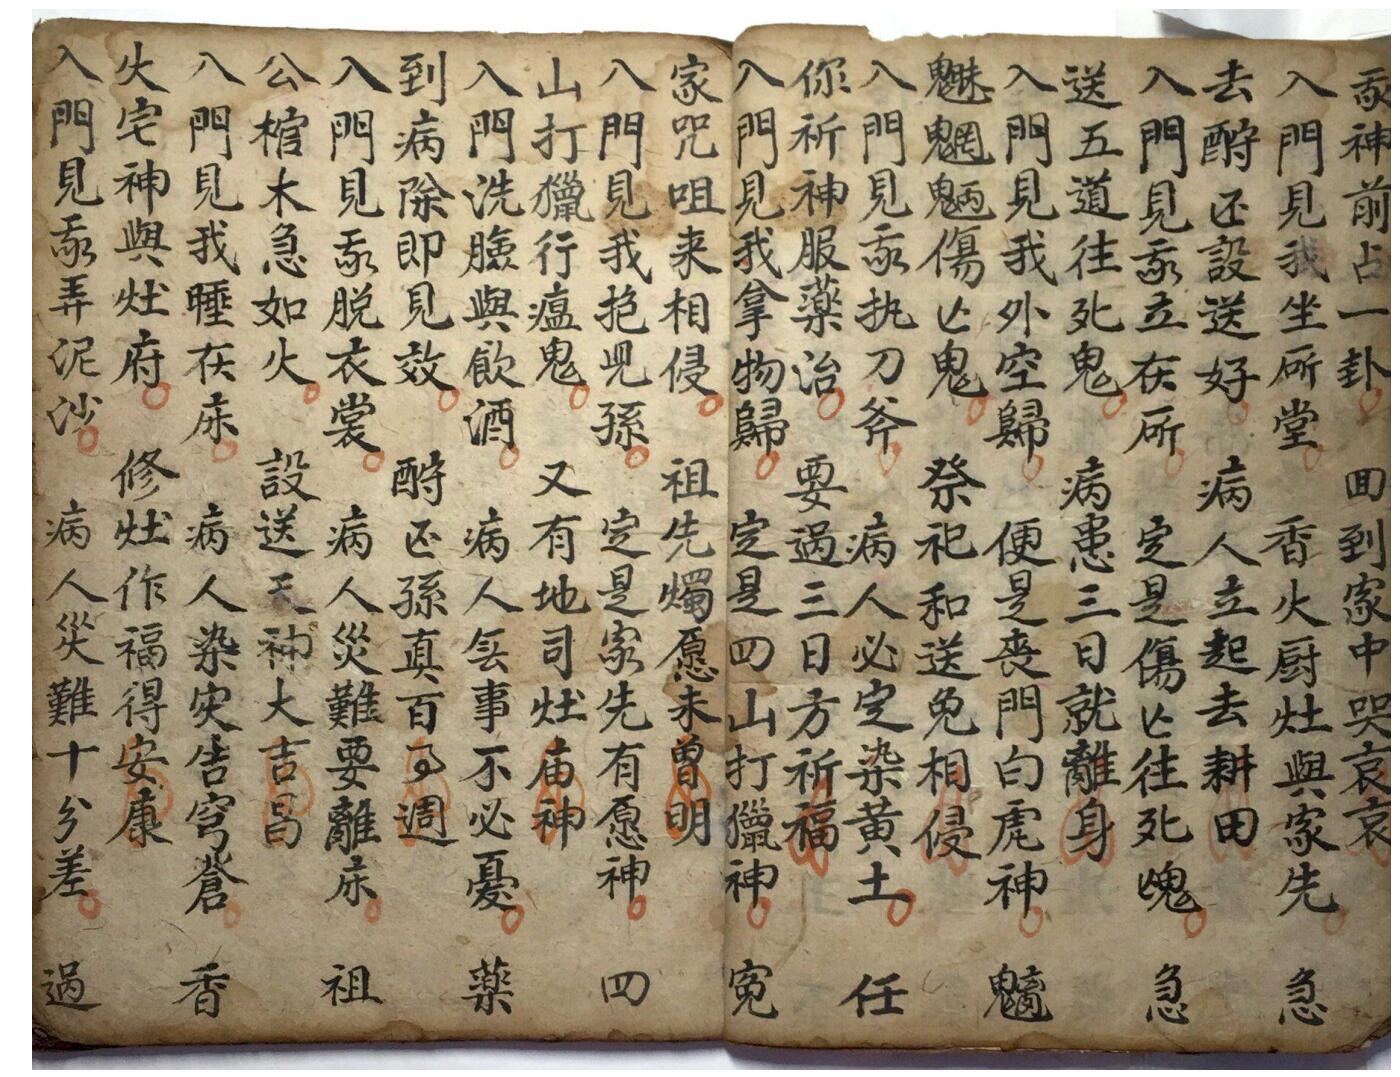 我神前占一卦 回到家中哭哀哀
入門見我坐所堂 香火厨灶與家先 急
去酧还設送好 病人立起去耕田
入門見我立在所 定是傷亡往死魂 急
送五道往死鬼 病患三日就離身
入門見我外空歸 便是喪門白虎神 魑
魅魍魎傷亡鬼 祭祀和送免相侵
入門見我执刀斧 病人必定染黃土 任
你祈神服藥治 要過三日方祈福
入門見我拿物歸 定是四山打獵神 冤
家咒咀来相侵 祖先燭愿未曾明
入門見我抱児孫 定是家先有愿神 四
山打獵行瘟鬼 又有地司灶庙神
入門洗臉與飲酒 病人無事不必憂 藥
到病除即見效 酧还孫真百事週
入門見我脱衣裳 病人災難要離床 祖
公棺木急如火 設送天神大吉昌
入門見我睡在床 病人染灾告穹蒼 香
火宅神與灶府 修灶作福得安康
入門見我弄泥沙 病人災難十分差 過